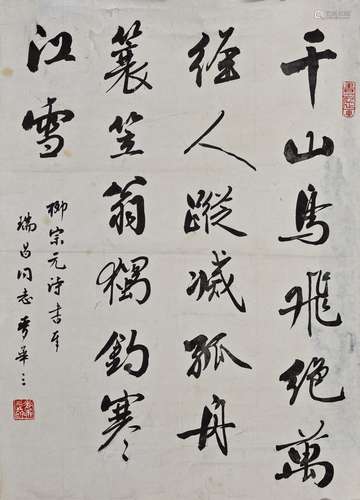 千山鳥飛絕萬
徑人蹤滅孤舟
蓑笠翁獨釣寒
江雪
柳宗元诗
瑞昌同志